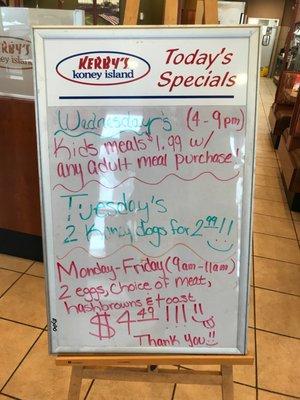 KERBY'S
koney island
Today's
Specials
KERBY'S
koney island
Wednesday's (4-9pm)
Kids meals $1.99 w/
any adult meal purchase!
Tuesday's
2 Koney dogs for 2.99!!
Monday-Friday (9am-11am)
2 eggs, choice of meat,
hashbrowns & toast
$4.49!!!!
Thank You